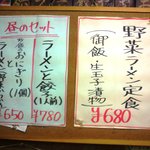 昼のセット
ラーメンと
餃子(1人前)
¥780
ラーメンと
おにぎり(1個)
¥650
野菜ラーメン定食
御飯・生玉子
漬物
¥680